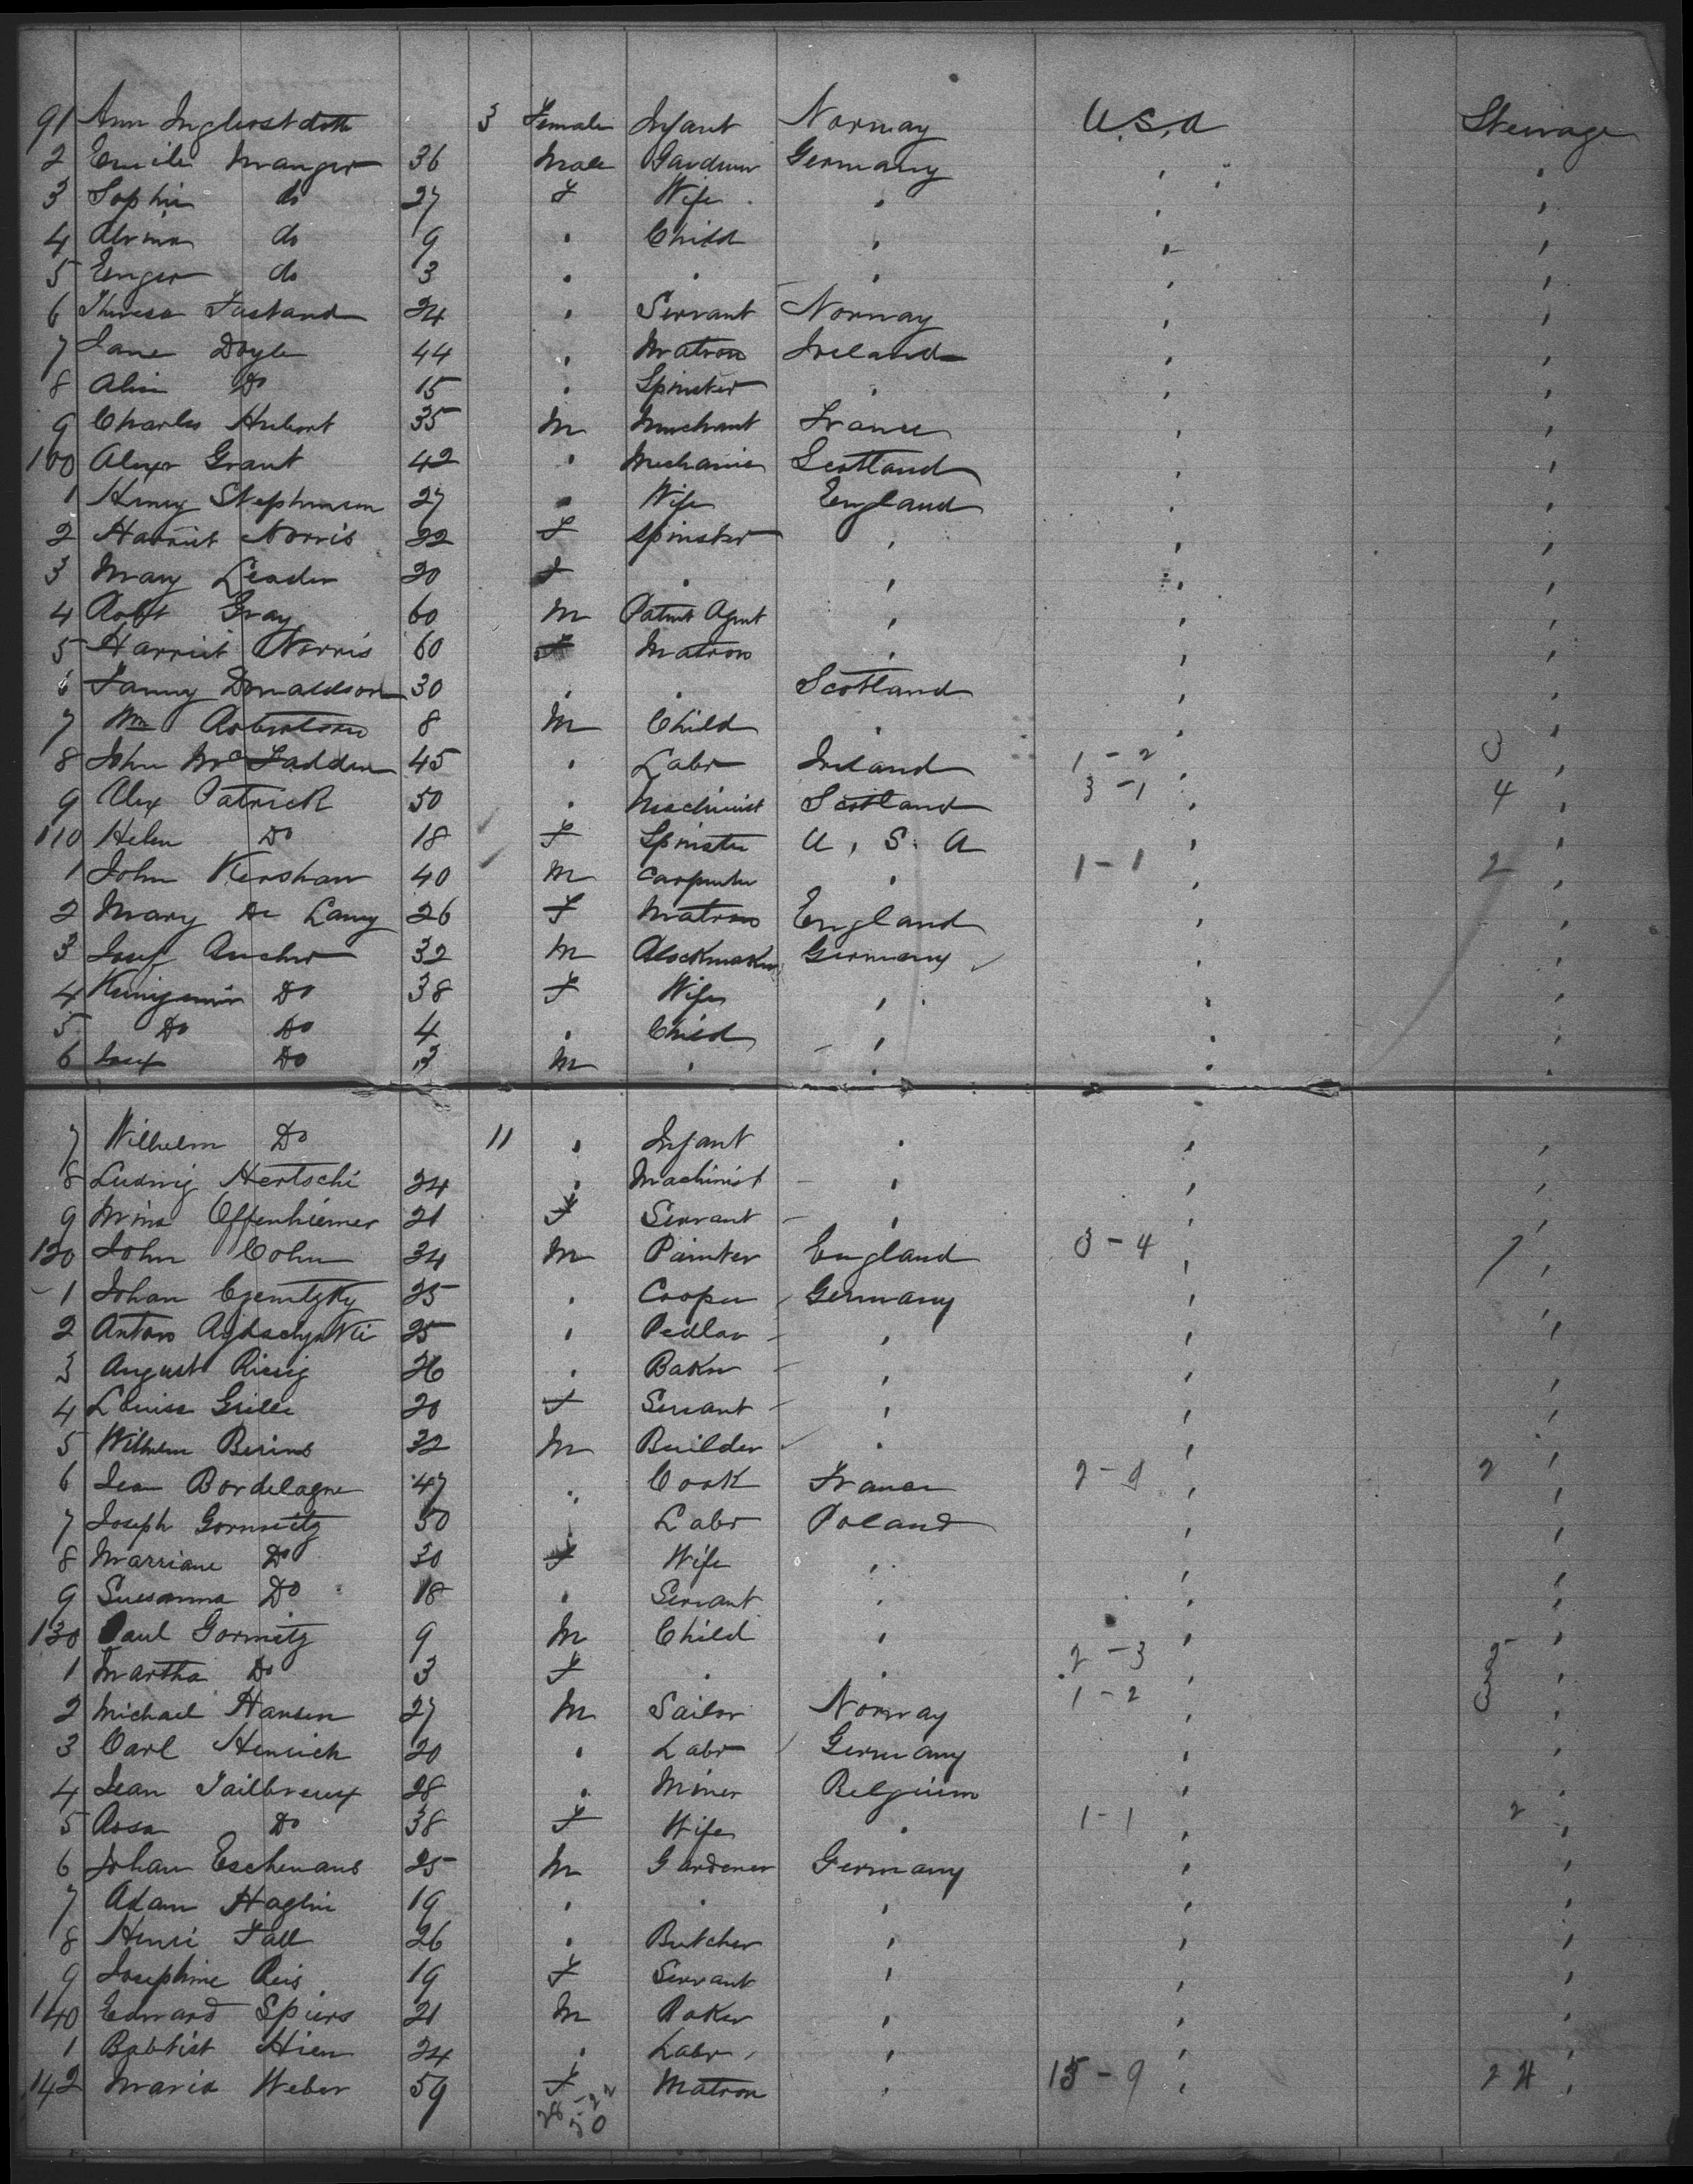 91 Ann 3 Female Infant Norway U.S.A Steerage
2 Emile Manger 36 Male Germany
3 Sophie do 27 F Wife "
4 Alvina do 9 " Child "
5 do 3 " " "
6 Theresa 24 " Servant Norway
7 Jane Doyle 44 " Matron Ireland
8 Do 15 " Spinster "
9 Charles Hubert 35 M Merchant France
100 Alexr Grant 42 " Mechanic Scotland
1 Henry Stephenson 27 " Wife England
2 Harriet Norris 22 F Spinster "
3 Mary Leader 20 F " "
4 Robt Gray 60 M Patent Agent "
5 Harriet Norris 60 F Matron "
6 Fanny Donaldson 30 " " Scotland
7 Wm Robertson 8 M Child "
8 John McFadden 45 " Labr Ireland 1-2 3
9 Alex Patrick 50 " Machinist Scotland 3-1 4
110 Helen Do 18 F Spinster U.S.A
1 John Kershaw 40 M Carpenter " 1-1 2
2 Mary De 26 F Matron England
3 Josef 32 M Germany
4 Do 38 F Wife "
5 Do Do 4 " Child "
6 Josef Do 3 M " "
7 Wilhelm Do 11 " Infant "
8 Ludwig Hertschi 24 " Machinist "
9 Mina Offenhiemer 21 F Servant "
120 John Cohn 34 M Painter England 3-4 7
1 Johan 25 " Cooper Germany
2 Anton 25 " Pedlar "
3 August 26 " Baker "
4 Louise 20 F Servant "
5 Wilhelm 32 M Builder "
6 Jean Bordelagne 47 " Cook France 2
7 Joseph Gormitz 50 " Labr Poland
8 Marriane Do 30 F Wife "
9 Susanna Do 18 " Servant "
130 Paul Gormitz 9 M Child "
1 Martha Do 3 F " " 2-3 5
2 Michael Hansen 27 M Sailor Norway 1-2 3
3 Carl Henrich 20 " Labr Germany
4 Jean Tailbreux 28 " Miner Belgium
5 Rosa Do 38 F Wife " 1-1 2
6 Johan Eschemans 25 M Gardener Germany
7 Adam Haglin 19 " " "
8 Henri Fall 26 " Butcher "
9 Josephine Reis 19 F Servant "
140 Edward Spiers 21 M Baker "
1 Babtist Hien 24 " Labr "
142 Maria Weber 59 F Matron " 15-9 24
28-22
50